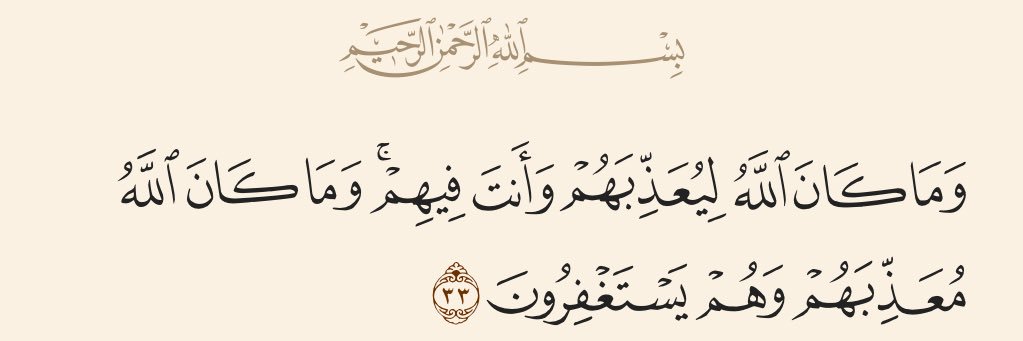 بِسْمِ ٱللَّهِ ٱلرَّحْمَٰنِ ٱلرَّحِيمِ
وَمَا كَانَ ٱللَّهُ لِيُعَذِّبَهُمْ وَأَنتَ فِيهِمْ ۚ وَمَا كَانَ ٱللَّهُ
مُعَذِّبَهُمْ وَهُمْ يَسْتَغْفِرُونَ ٣٣